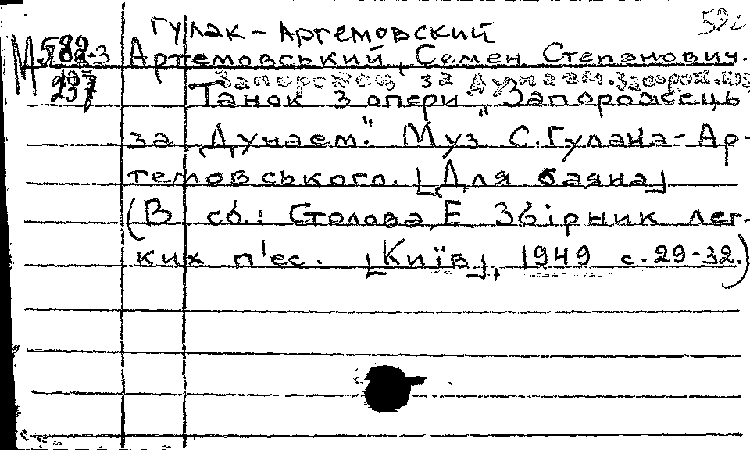 Гулак-Артемовский 582
М 582-3 Артемовський, Семен Степанович.
Запорожец за Дунаем.
237 Танок з опери "Запорожець
за Дунаем." Муз С.Гулака-Ар-
темовського. [Для баяна]
(В сб.: Столова, Е Збірник лег-
ких п'ес. [Київ], 1949 с.29-32.)